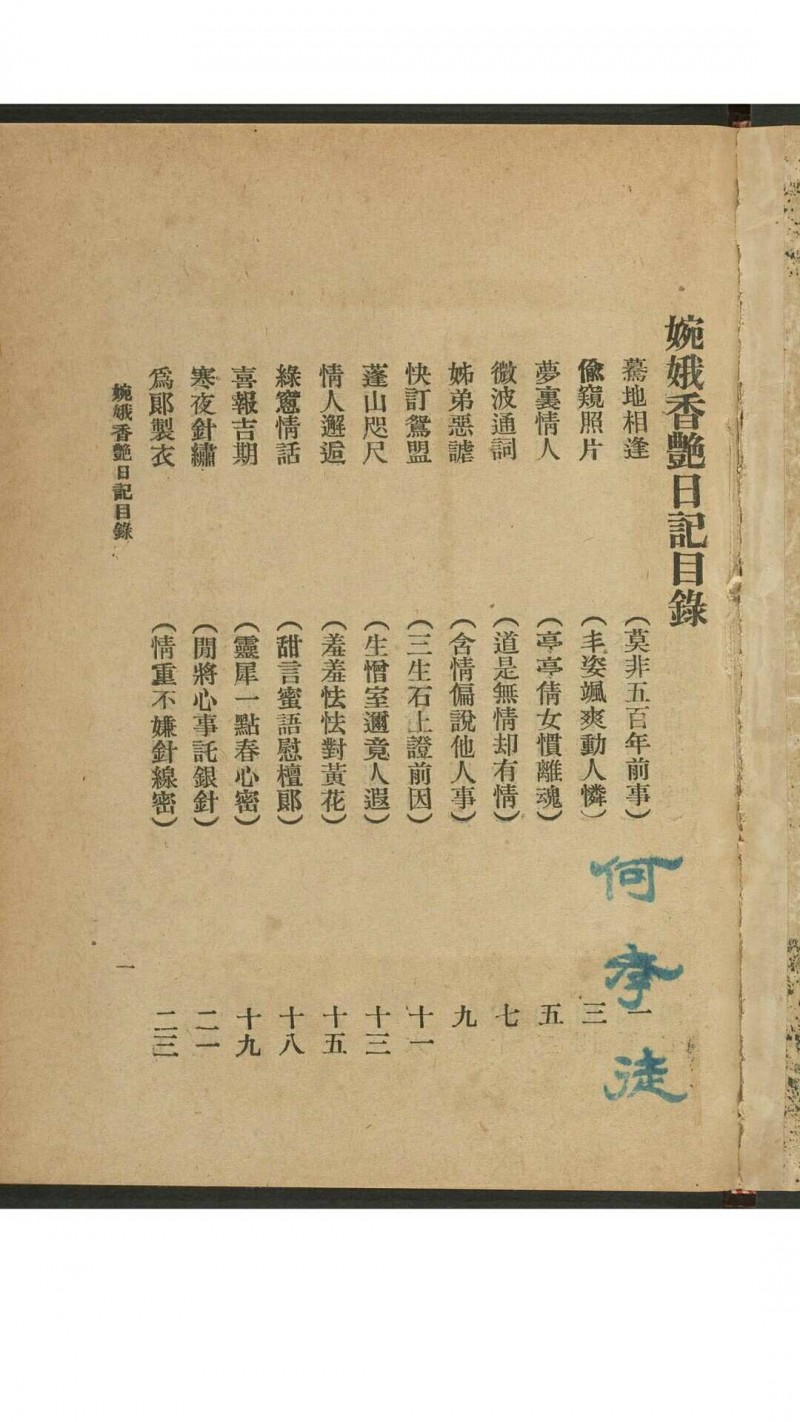 婉娥香艷日記目錄
驀地相逢 (莫非五百年前事) 一
偸窺照片 (丰姿颯爽動人憐) 三
夢裏情人 (亭亭倩女慣離魂) 五
微波通詞 (道是無情却有情) 七
姊弟惡謔 (含情偏說他人事) 九
快訂鴛盟 (三生石上證前因) 十一
蓬山咫尺 (生憎室邇竟人遐) 十三
情人邂逅 (羞羞怯怯對黃花) 十五
綠窻情話 (甜言蜜語慰檀郞) 十八
喜報吉期 (靈犀一點春心密) 十九
寒夜針繡 (閒將心事託銀針) 二一
爲郞製衣 (情重不嫌針線密) 二三
婉娥香艷日記目錄
一
何 徒